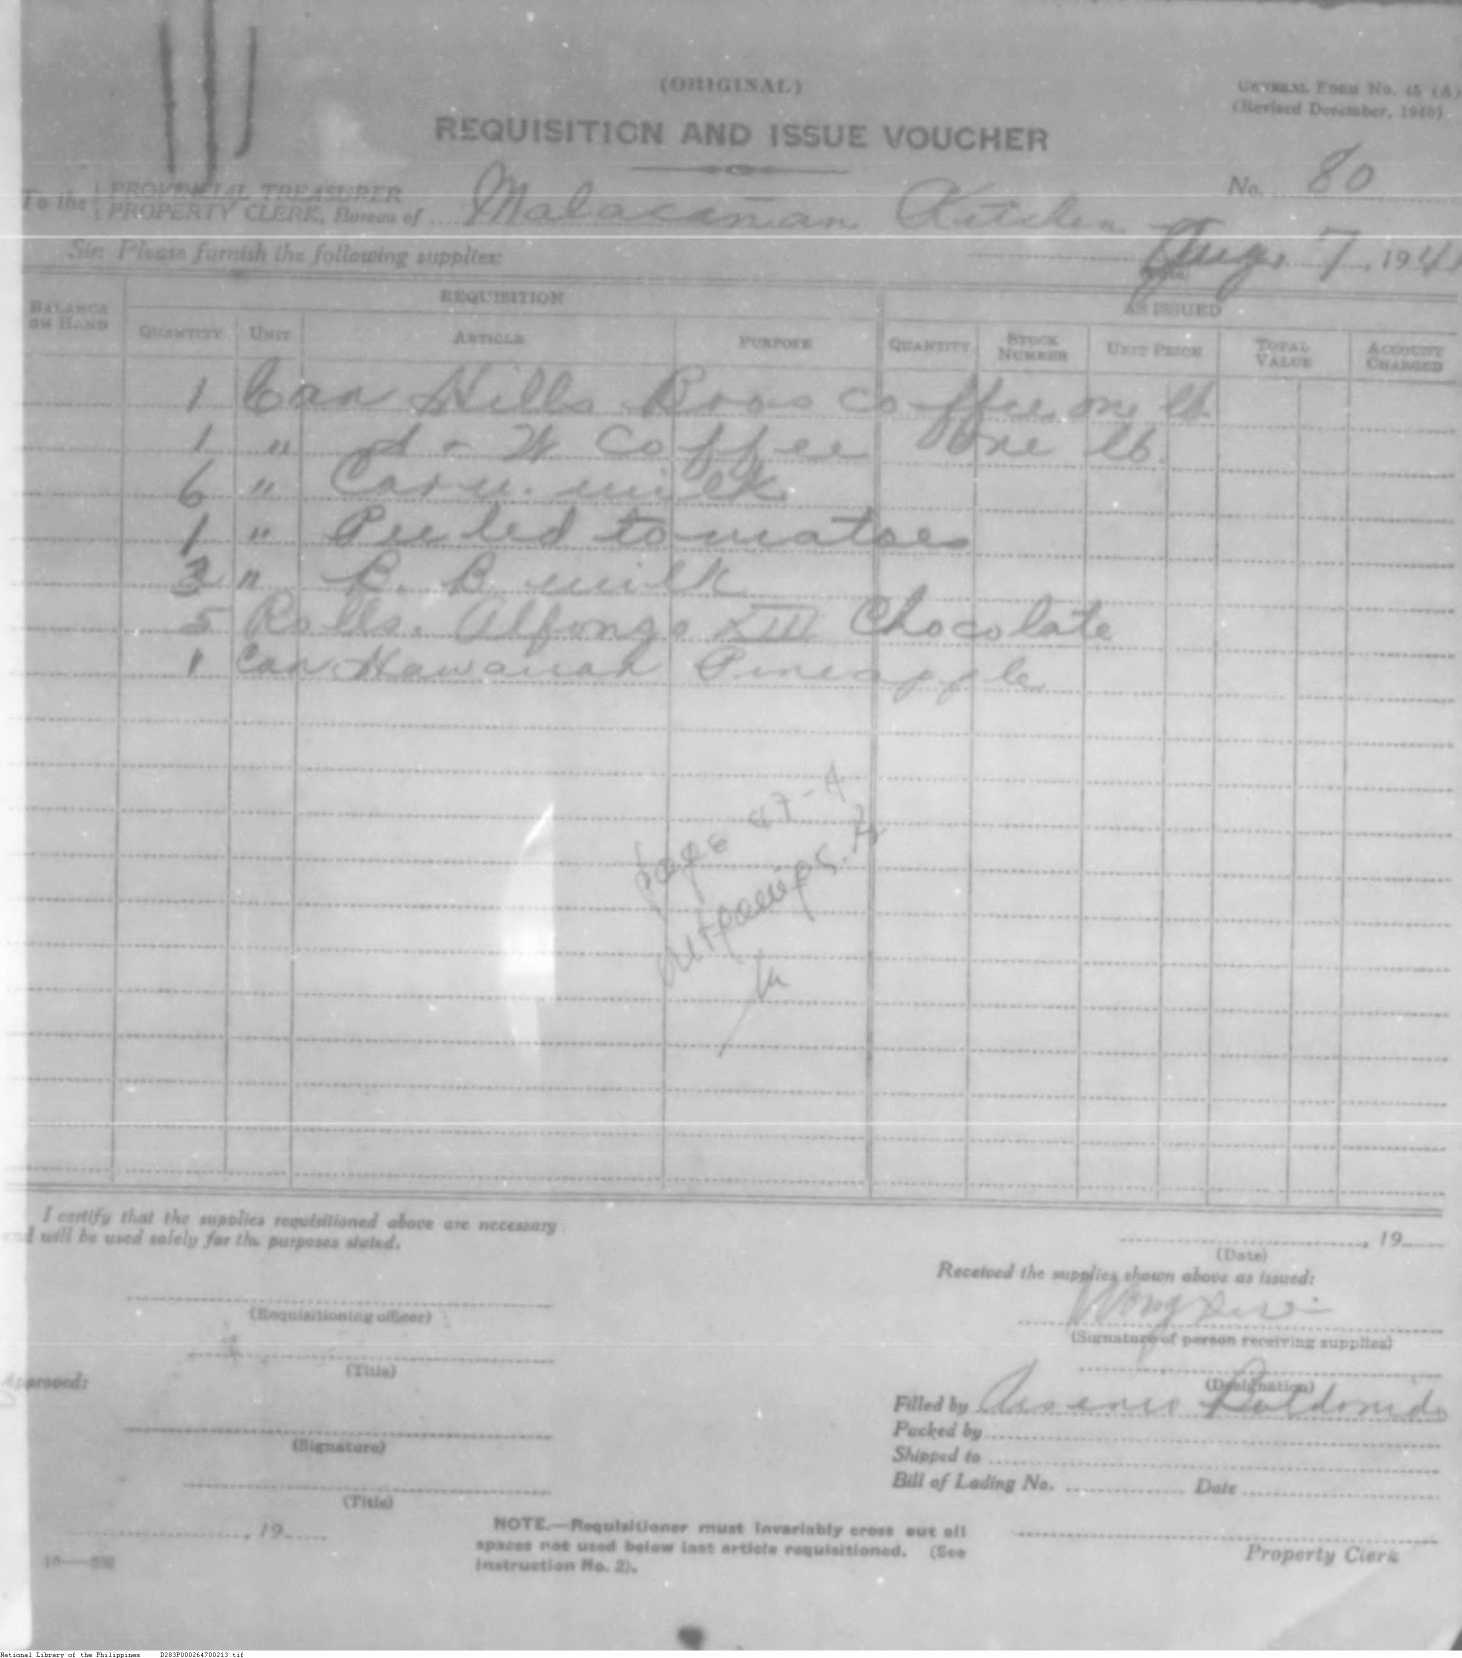 (ORIGINAL)
GENERAL FORM No. 45 (A)
(Revised December, 1940)
REQUISITION AND ISSUE VOUCHER
No. 80
To the { PROVINCIAL TREASURER
PROPERTY CLERK, Bureau of Malacañan Kitchen
Aug. 7, 1941
Sir: Please furnish the following supplies:
REQUISITION
AS ISSUED
BALANCE ON HAND QUANTITY UNIT ARTICLE PURPOSE QUANTITY STOCK NUMBER UNIT PRICE TOTAL VALUE ACCOUNT CHARGED
1 Can Hills Bros coffee one lb.
1 " S & W Coffee one lb.
6 " Carn. milk
1 " Peeled tomatoes
3 " B. B. milk
5 Rolls. Alfonso XIII Chocolate
1 Can Hawaiian Pineapple
I certify that the supplies requisitioned above are necessary
and will be used solely for the purposes stated.
, 19
(Date)
Received the supplies shown above as issued:
(Requisitioning officer)
(Signature of person receiving supplies)
(Title)
(Designation)
Approved:
Filled by Arsenio
Packed by
(Signature)
Shipped to
Bill of Lading No. Date
(Title)
, 19
NOTE.—Requisitioner must invariably cross out all
spaces not used below last article requisitioned. (See
Instruction No. 2).
Property Clerk
National Library of the Philippines D283P000264700213.tif